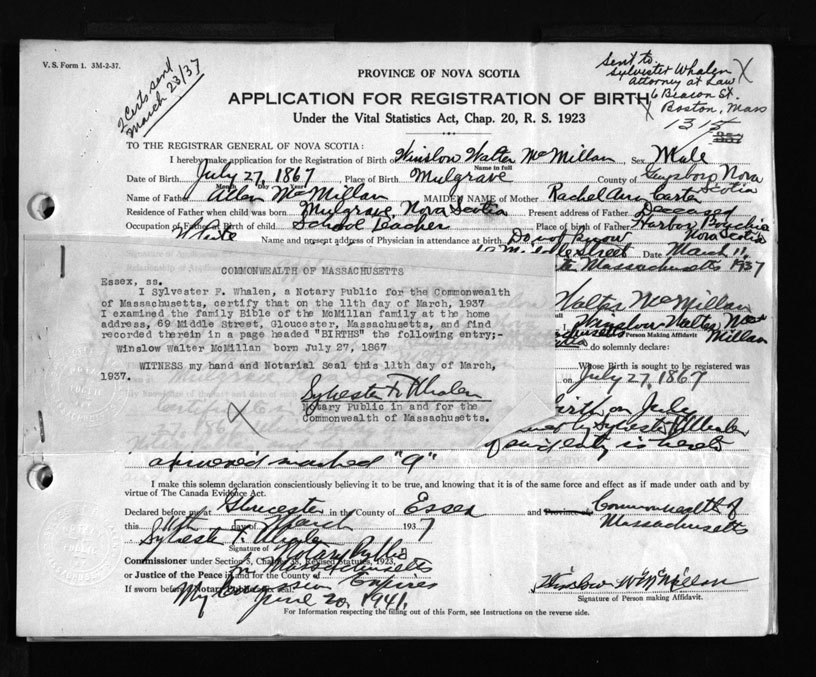 V. S. Form 1. 3M-2-37.
2 Certs. sent
March 23/37
Sent to.
Sylvester Whalen X
Attorney at Law
6 Beacon St.
X Boston, Mass
1315
PROVINCE OF NOVA SCOTIA
APPLICATION FOR REGISTRATION OF BIRTH
Under the Vital Statistics Act, Chap. 20, R. S. 1923
TO THE REGISTRAR GENERAL OF NOVA SCOTIA:
I hereby make application for the Registration of Birth of Winslow Walter McMillan Sex Male
Name in full
Date of Birth July 27, 1867 Place of Birth Mulgrave County of Guysboro Nova Scotia
Month Day Year
Name of Father Allan McMillan MAIDEN NAME of Mother Rachel Ann Carter
Residence of Father when child was born Mulgrave, Nova Scotia Present address of Father Deceased
Occupation of Father at Birth of child School Teacher Place of birth of Father Harbor Nova Scotia
White Name and present address of Physician in attendance at birth Do not know
Street Date March 11, 1937
Massachusetts
COMMONWEALTH OF MASSACHUSETTS
Essex, ss.
I Sylvester F. Whalen, a Notary Public for the Commonwealth
of Massachusetts, certify that on the 11th day of March, 1937
I examined the family Bible of the McMillan family at the home
address, 69 Middle Street, Gloucester, Massachusetts, and find
recorded therein in a page headed "BIRTHS" the following entry;-
Winslow Walter McMillan born July 27, 1867
WITNESS my hand and Notarial Seal this 11th day of March,
1937.
Sylvester F. Whalen
Notary Public in and for the
Commonwealth of Massachusetts.
X
Walter McMillan
Winslow Walter McMillan
Person Making Affidavit
do solemnly declare:
Whose Birth is sought to be registered was
on July 27, 1867
birth on July
by Sylvester F. Whalen
of said entry is hereto
annexed marked "A"
I make this solemn declaration conscientiously believing it to be true, and knowing that it is of the same force and effect as if made under oath and by
virtue of The Canada Evidence Act.
Declared before me at Gloucester in the County of Essex and Province of Commonwealth of
Massachusetts
this 11th day of March 1937
Sylvester F. Whalen
Signature of Notary Public
Commissioner under Section 5, Chapter 38, Revised Statutes, 1923, in Massachusetts
or Justice of the Peace in and for the County of
If sworn before a Notary Public fix seal.
My Commission Expires
June 20, 1941.
Winslow W. McMillan
Signature of Person making Affidavit.
For Information respecting the filling out of this Form, see Instructions on the reverse side.